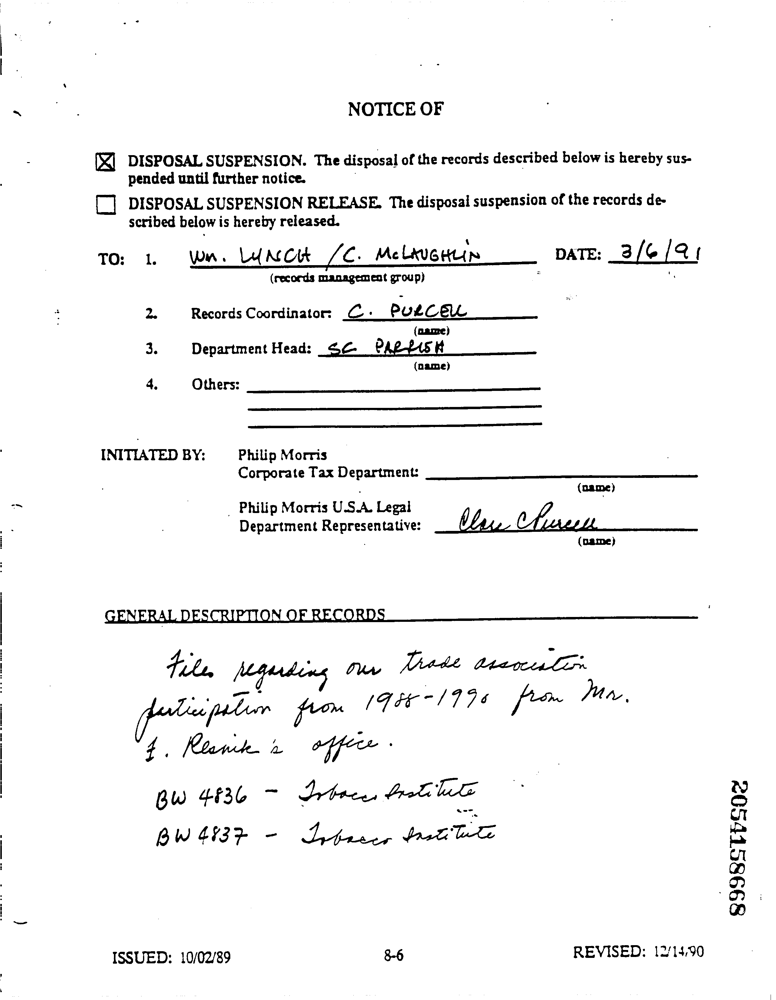 NOTICE OF
☒ DISPOSAL SUSPENSION. The disposal of the records described below is hereby sus-
pended until further notice.
☐ DISPOSAL SUSPENSION RELEASE. The disposal suspension of the records de-
scribed below is hereby released.
TO: 1. Wm. LYNCH / C. McLAUGHLIN DATE: 3/6/91
(records management group)
2. Records Coordinator: C. PURCELL
(name)
3. Department Head: SC PARRISH
(name)
4. Others:
INITIATED BY: Philip Morris
Corporate Tax Department:
(name)
Philip Morris U.S.A. Legal
Department Representative: Clare C Purcell
(name)
GENERAL DESCRIPTION OF RECORDS
Files regarding our trade association
participation from 1988-1990 from Mr.
Resnik's office.
BW 4836 - Tobacco Institute
BW 4837 - Tobacco Institute
2054158668
ISSUED: 10/02/89 8-6 REVISED: 12/14/90